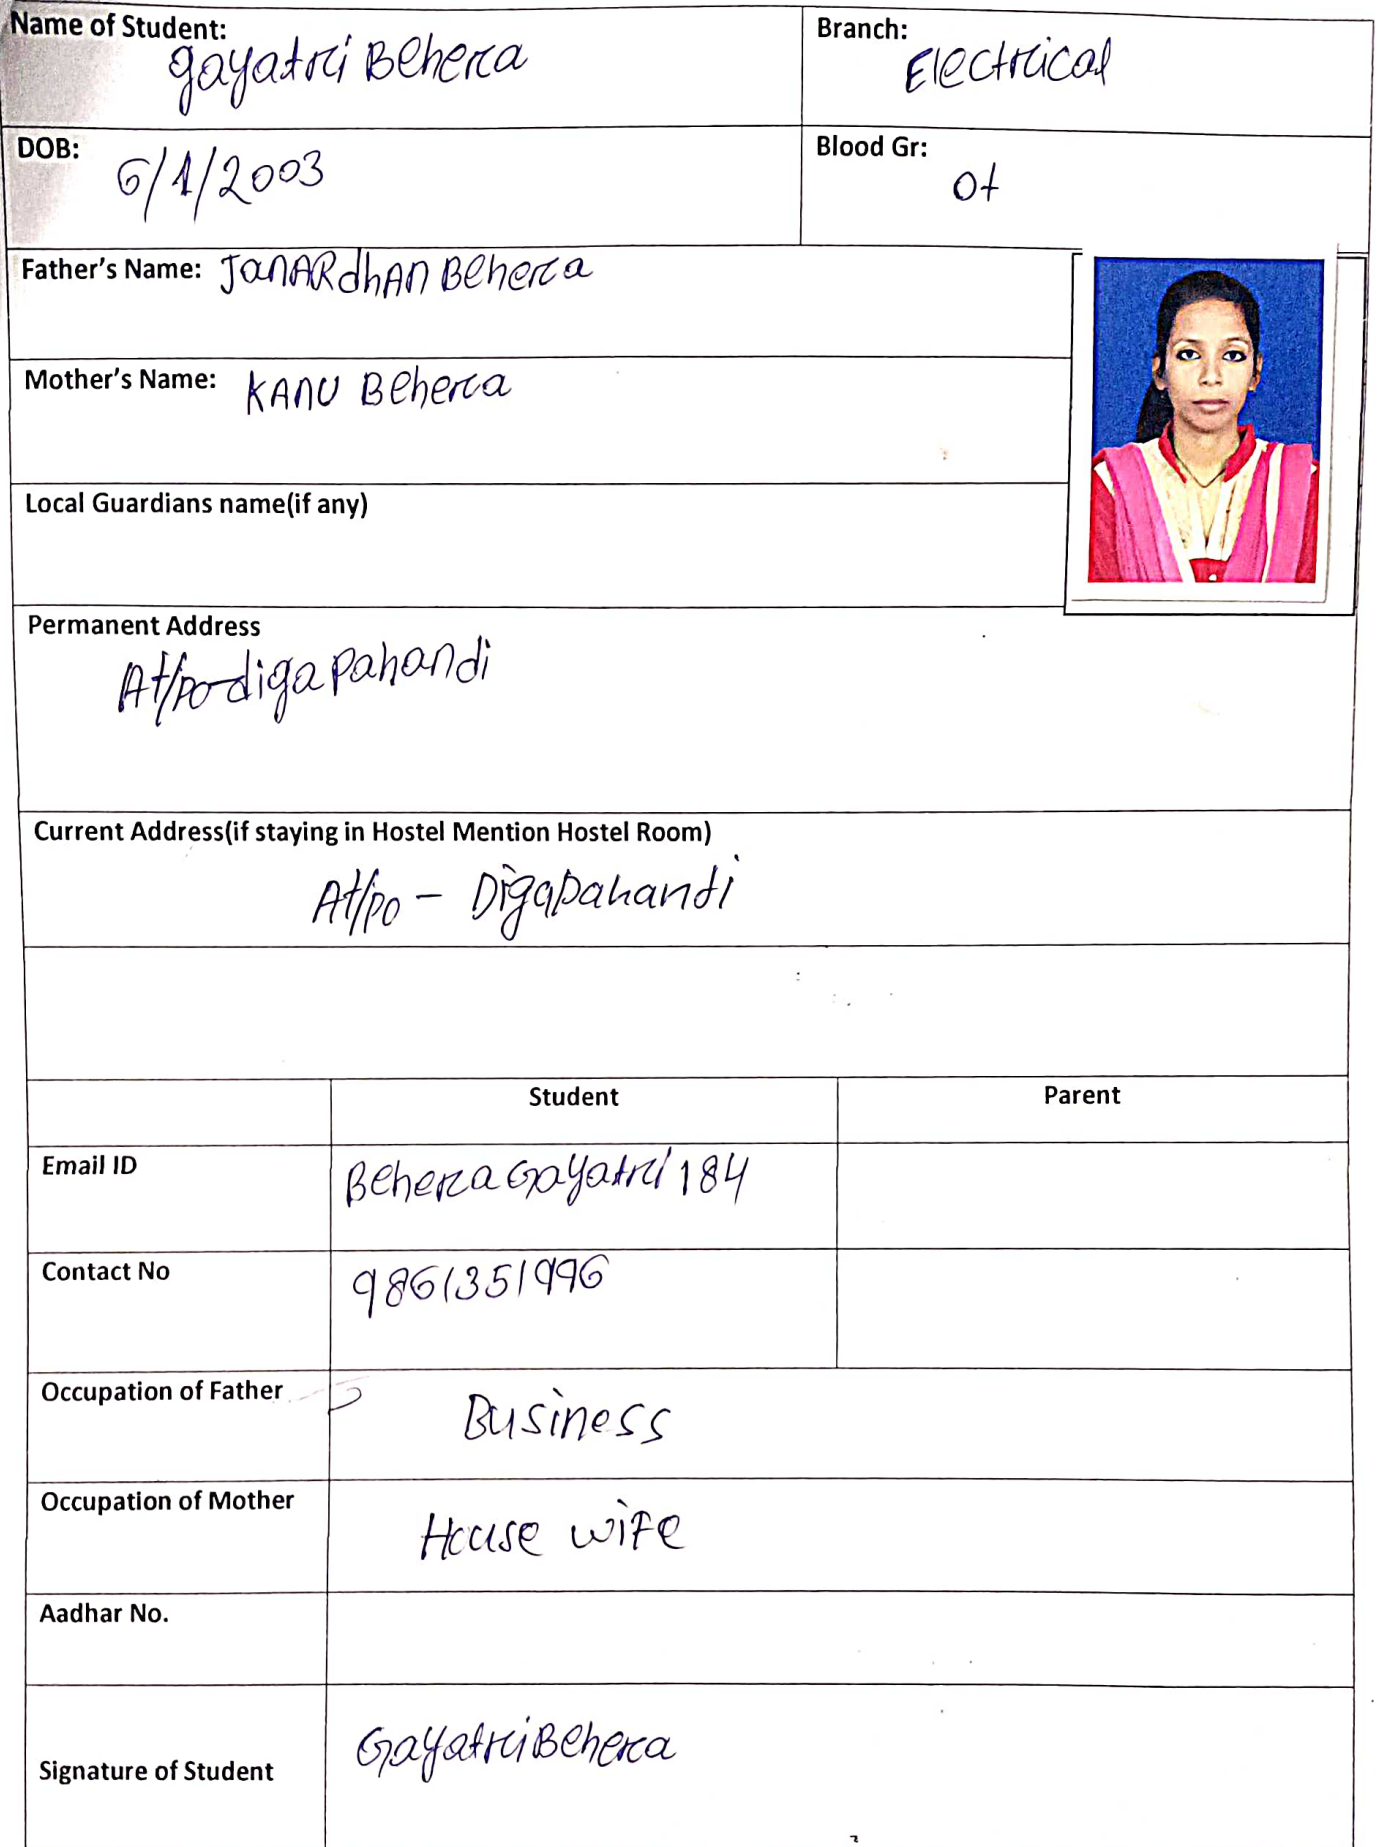 Name of Student:
gayatri Behera
Branch:
Electrical
DOB:
6/1/2003
Blood Gr:
O+
Father's Name: JanARdhAn Behera
Mother's Name: KANU Behera
Local Guardians name(if any)
Permanent Address
At/po-digapahandi
Current Address(if staying in Hostel Mention Hostel Room)
At/po - Digapahandi
Student
Parent
Email ID
BeheraGayatri184
Contact No
9861351996
Occupation of Father
Business
Occupation of Mother
House wife
Aadhar No.
Signature of Student
GayatriBehera